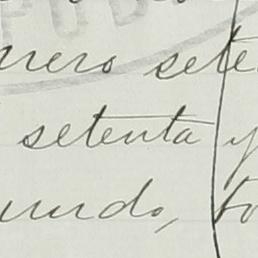 nero sete
setenta y
undo, to